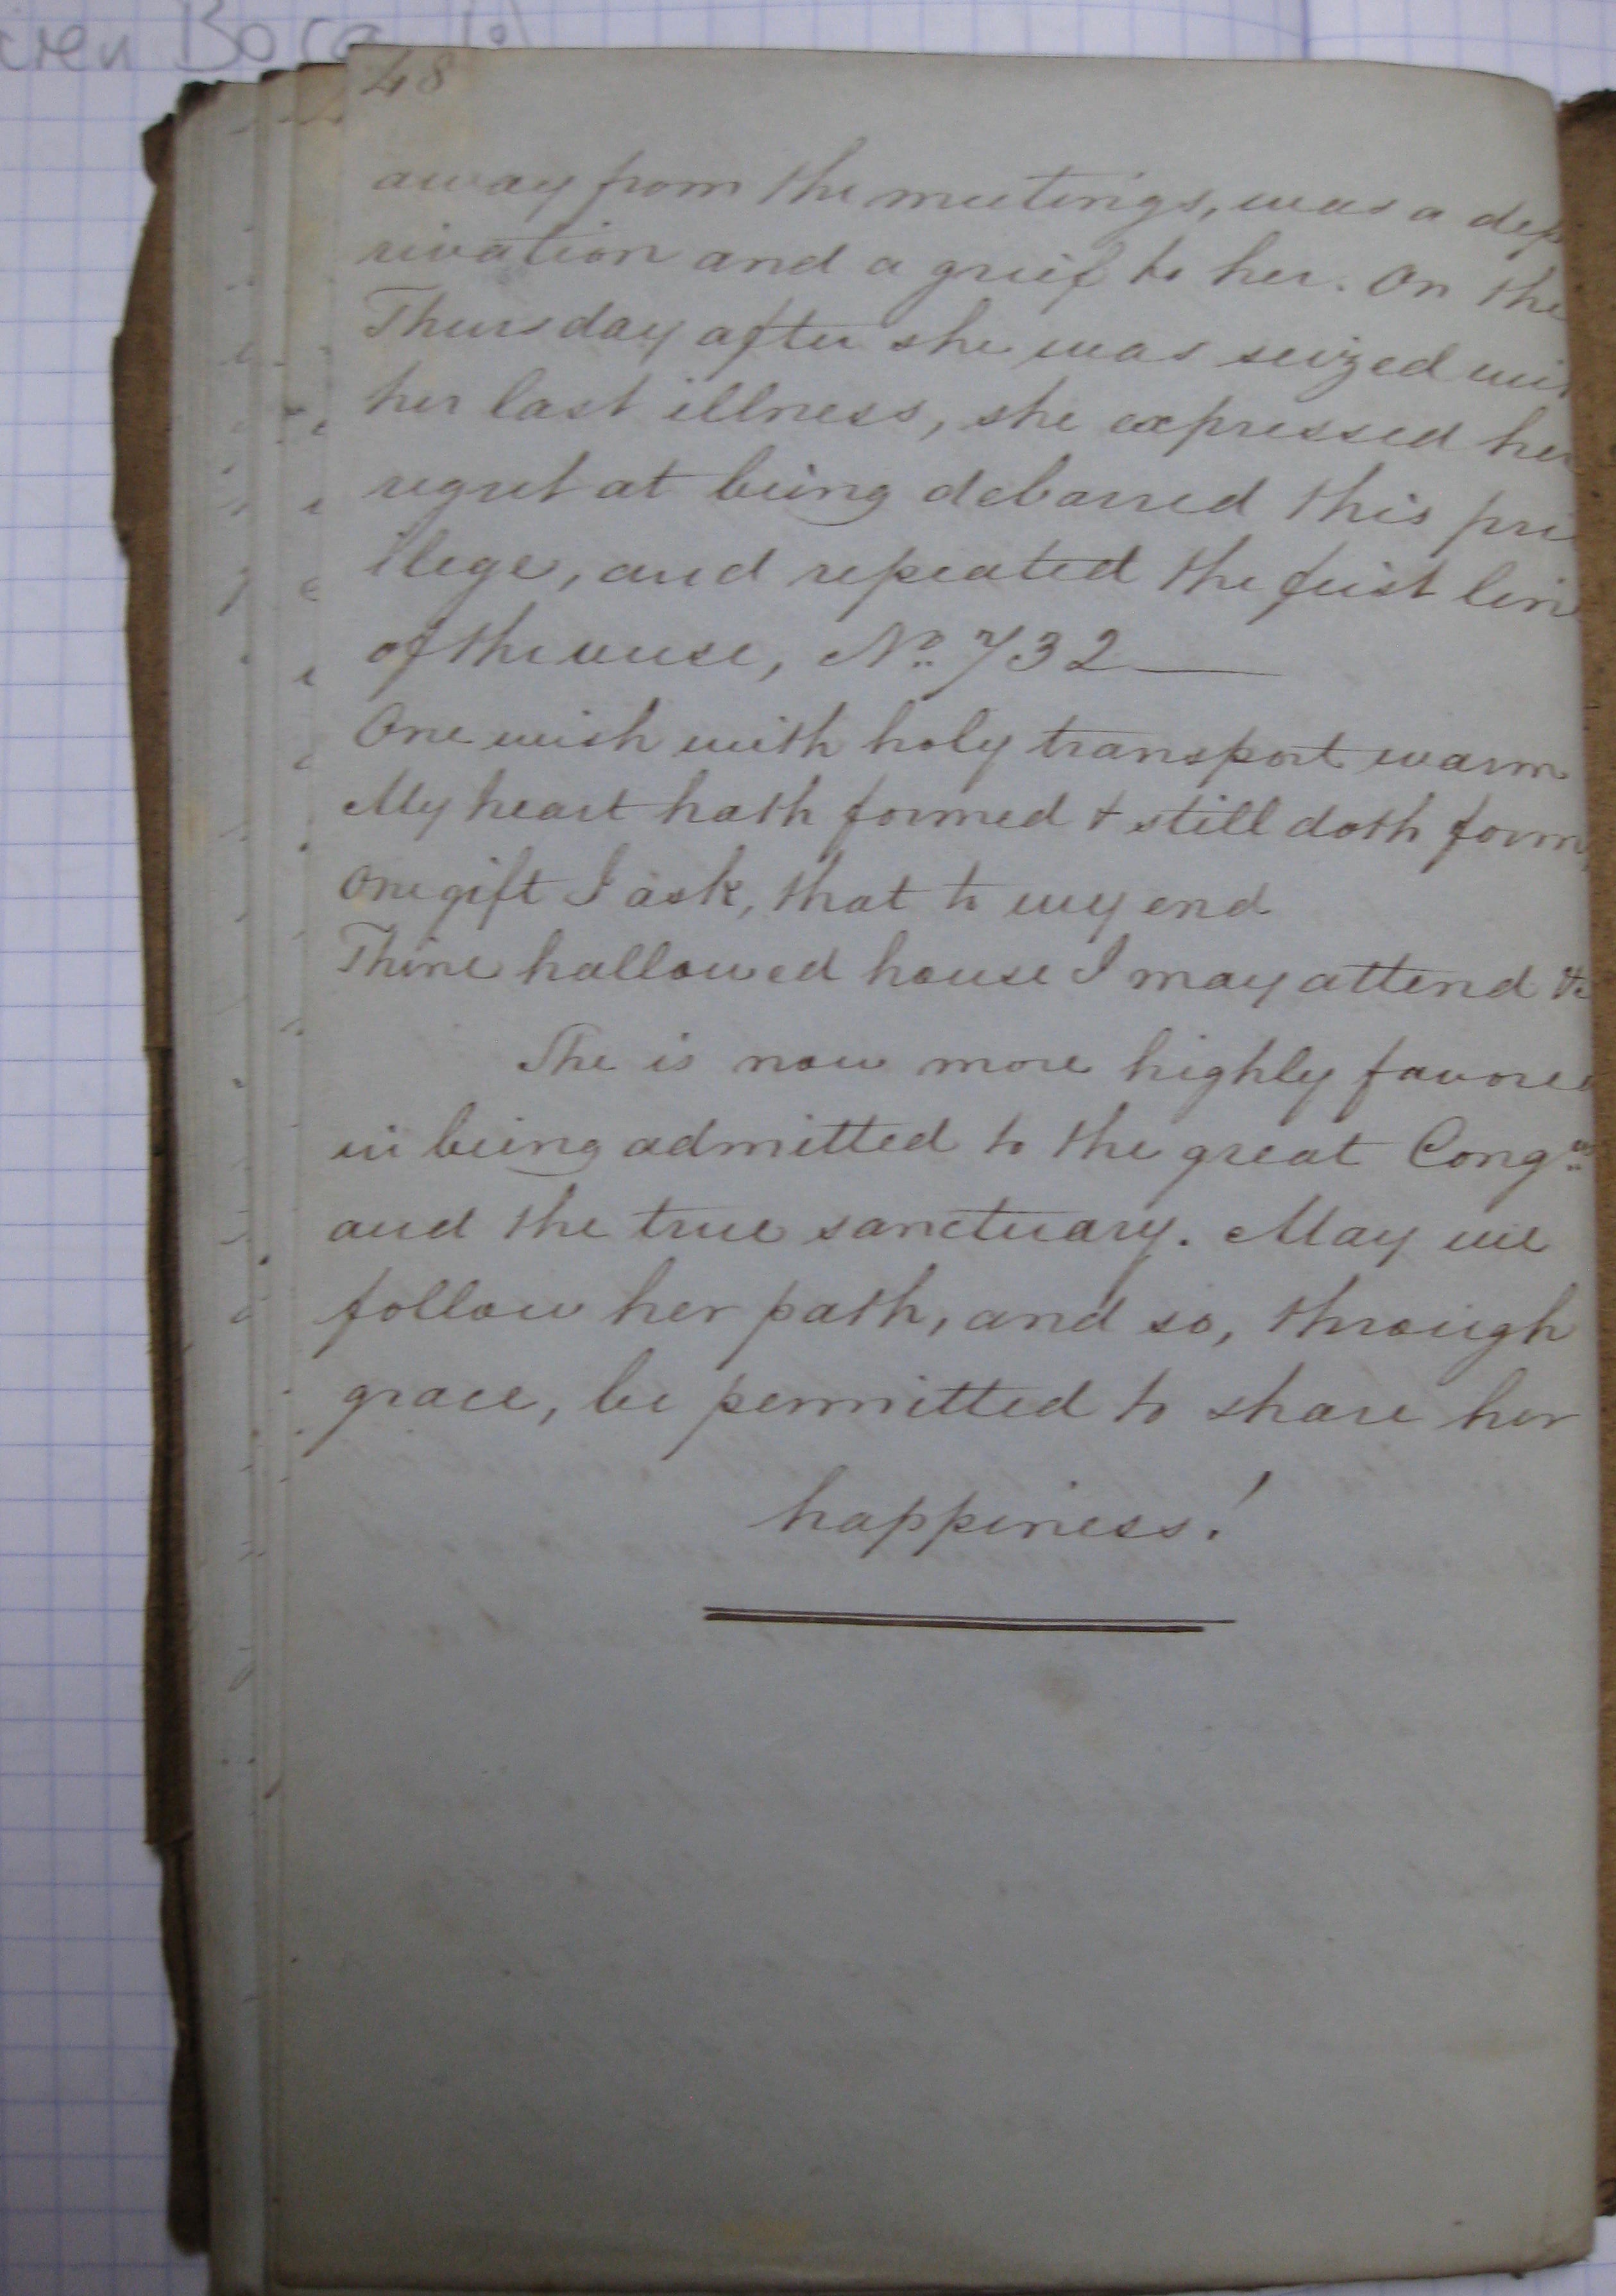 48
away from the meetings, was a dep
rivation and a grief to her. On the
Thursday after she was seized wit
her last illness, she expressed her
regret at being debarred this pri
ilege, and repeated the first line
of the verse, No. 732 —
One wish with holy transport warm
My heart hath formed & still doth form,
One gift I ask, that to my end
Thine hallowed house I may attend &c
She is now more highly favored
in being admitted to the great Congn
and the true sanctuary. May we
follow her path, and so, through
grace, be permitted to share her
happiness!